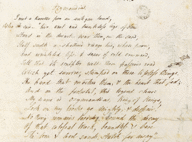 Ozymandias
I met a traveller from an antique land,
Who said — "two vast and trunkless legs of stone
Stand in the desart near them, on the sand,
Half sunk a shattered visage lies, whose frown
And wrinkled lip & sneer of cold command,
Tell that its sculptor well those passions read
Which yet survive, stamped on these lifeless things,
The hand that mocked them & the heart that fed;
And on the pedestal, this legend clear
My name is Ozymandias, King of Kings
Look on my works ye Mighty, & despair!
No thing remains beside. Round the decay
Of that Colossal Wreck, boundless & bare
The lone & level sands stretch far away.